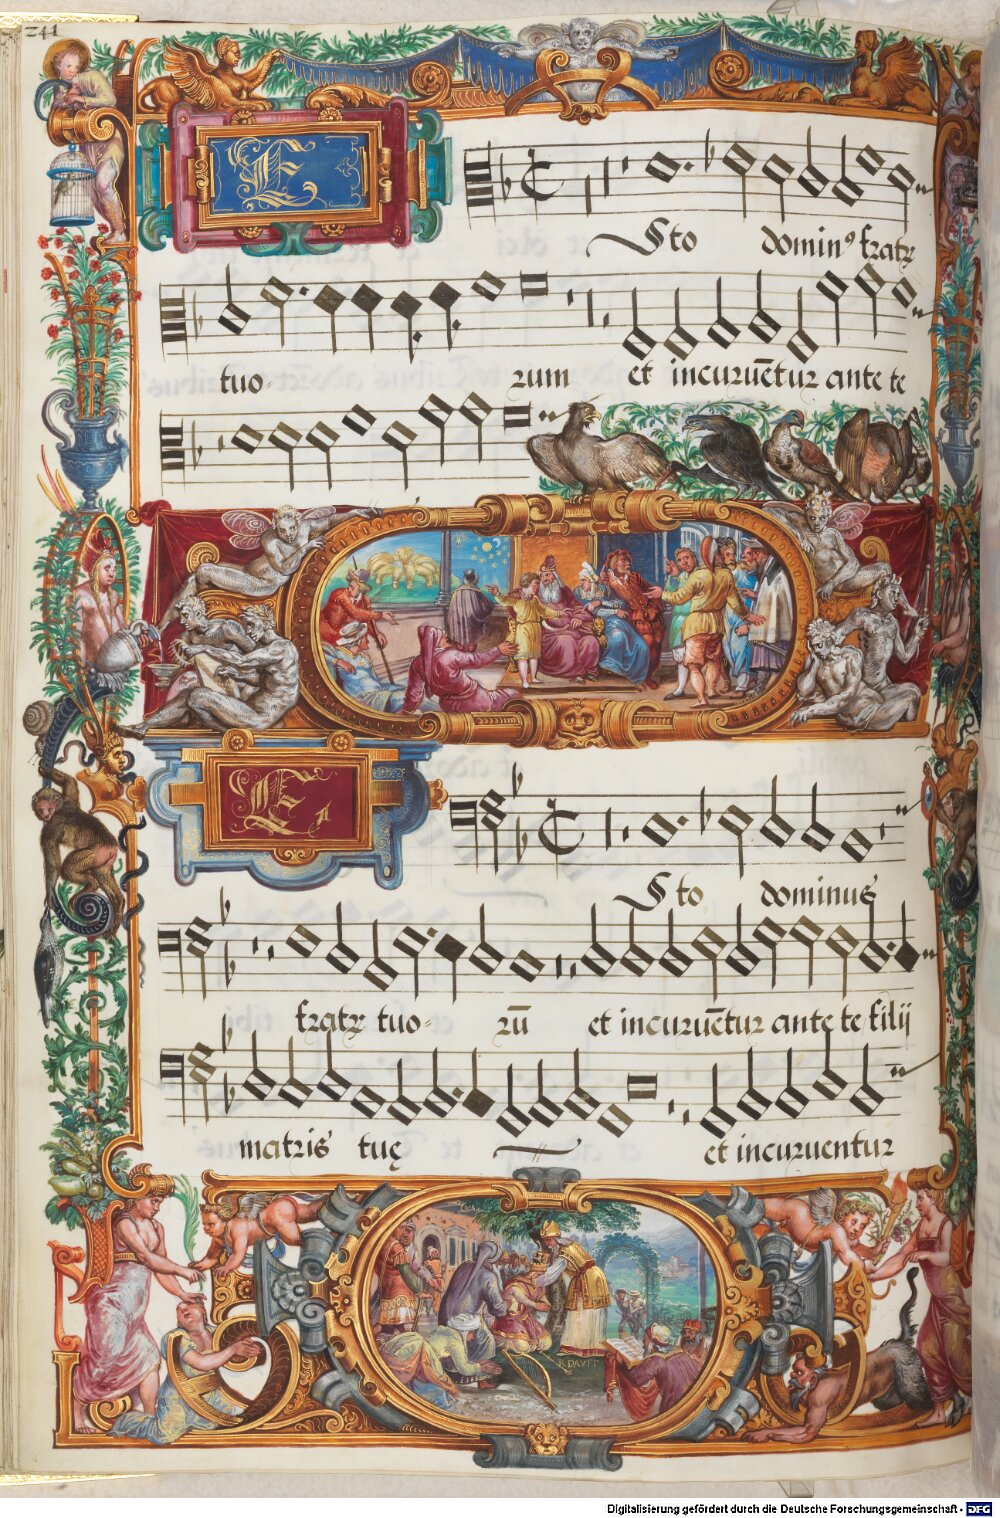 241
E
Sto domin⁹ fratꝝ
tuo- rum et incurue̅tur ante te
E
Sto dominus
fratꝝ tuo- ru̅ et incurue̅tur ante te filij
matris tuę et incuruentur
R DAVIT
Digitalisierung gefördert durch die Deutsche Forschungsgemeinschaft - DFG